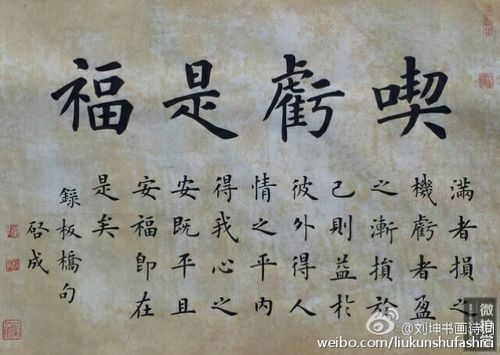 喫虧是福
滿者損之
機虧者盈
之漸損於
己則益於
彼外得人
情之平內
得我心之
安既平且
安福即在
是矣
錄板橋句
启成
微拍堂
@刘坤书画诗词
weibo.com/liukunshufashici